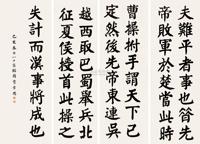 夫難平者事也昔先
帝敗軍於楚當此時
曹操拊手謂天下已
定然後先帝東連吳
越西取巴蜀舉兵北
征夏侯授首此操之
失計而漢事將成也